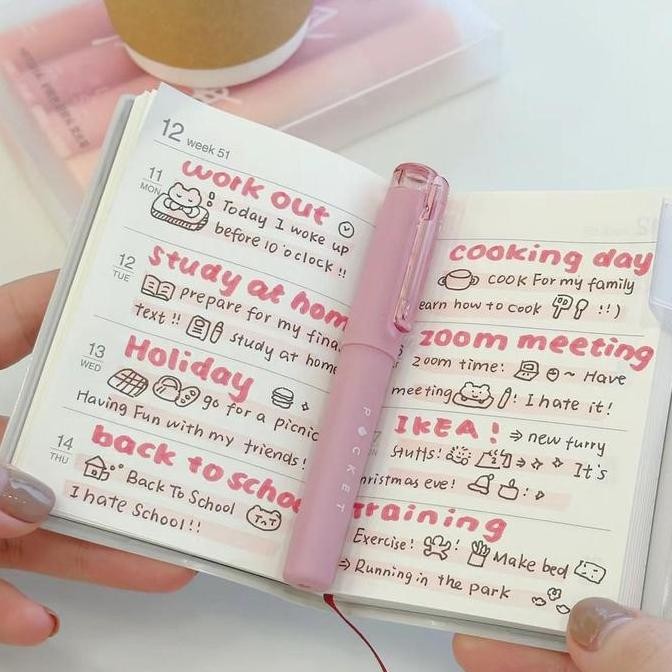 12 week 51
11
MON
work out
Today I woke up
before 10 o'clock !!
12
TUE
study at hom
prepare for my fina
text !! study at home
13
WED
Holiday
go for a picnic
Having Fun with my friends!
14
THU
back to schoo
Back To School
I hate School !!
POCKET
cooking day
cook For my family
earn how to cook !!)
zoom meeting
zoom time: ~ Have
meeting ! I hate it!
IKEA! ⇒ new furry
stuffs! ⇒ It's
hristmas eve!
training
Exercise! ! Make bed
⇒ Running in the park